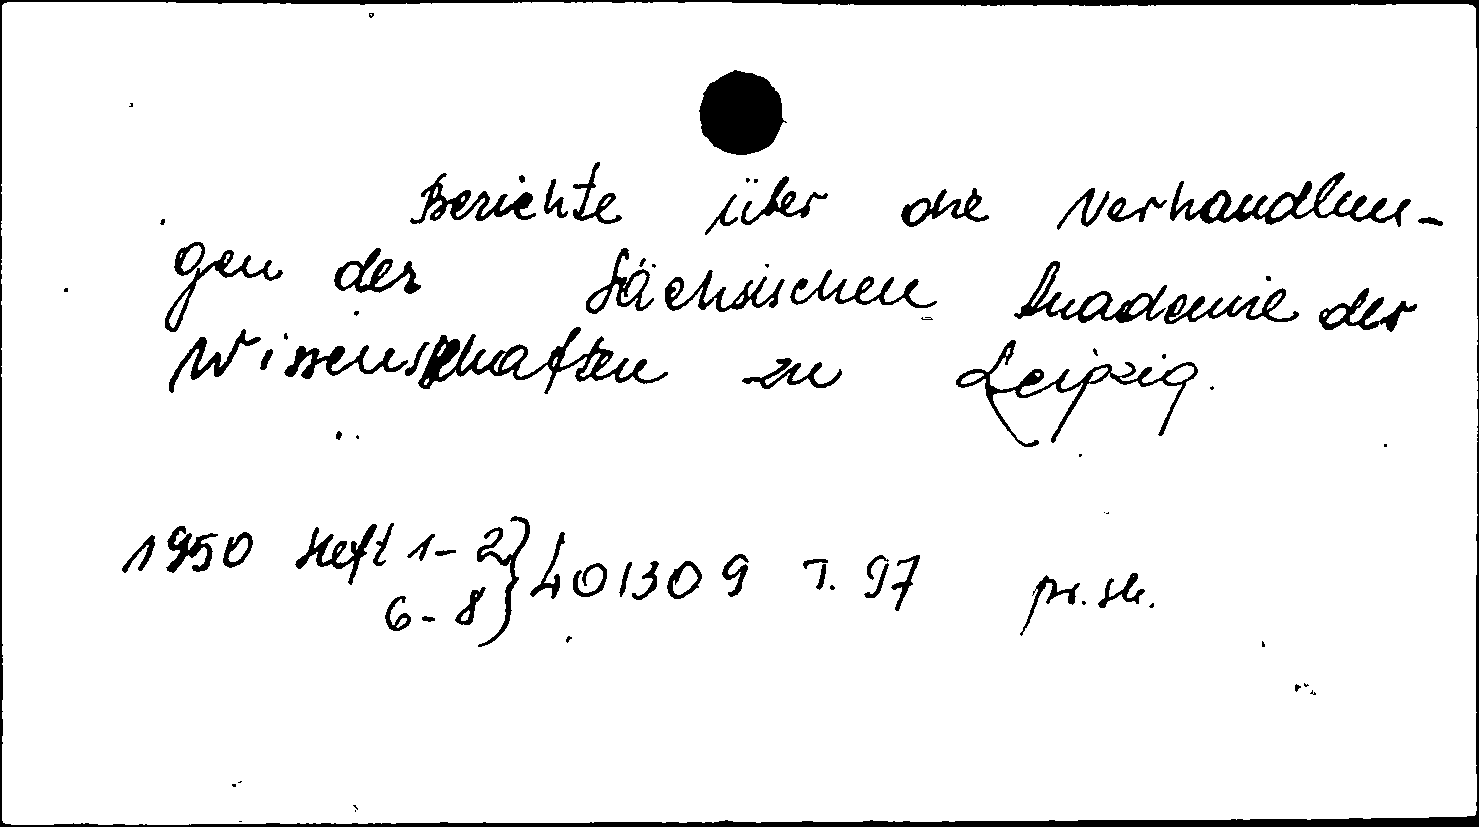 Berichte über die Verhandlun-
gen der Sächsischen Akademie der
Wissenschaften zu Leipzig.
1950 Heft 1-2 } 401309 T. 97 pr. sk.
6-8